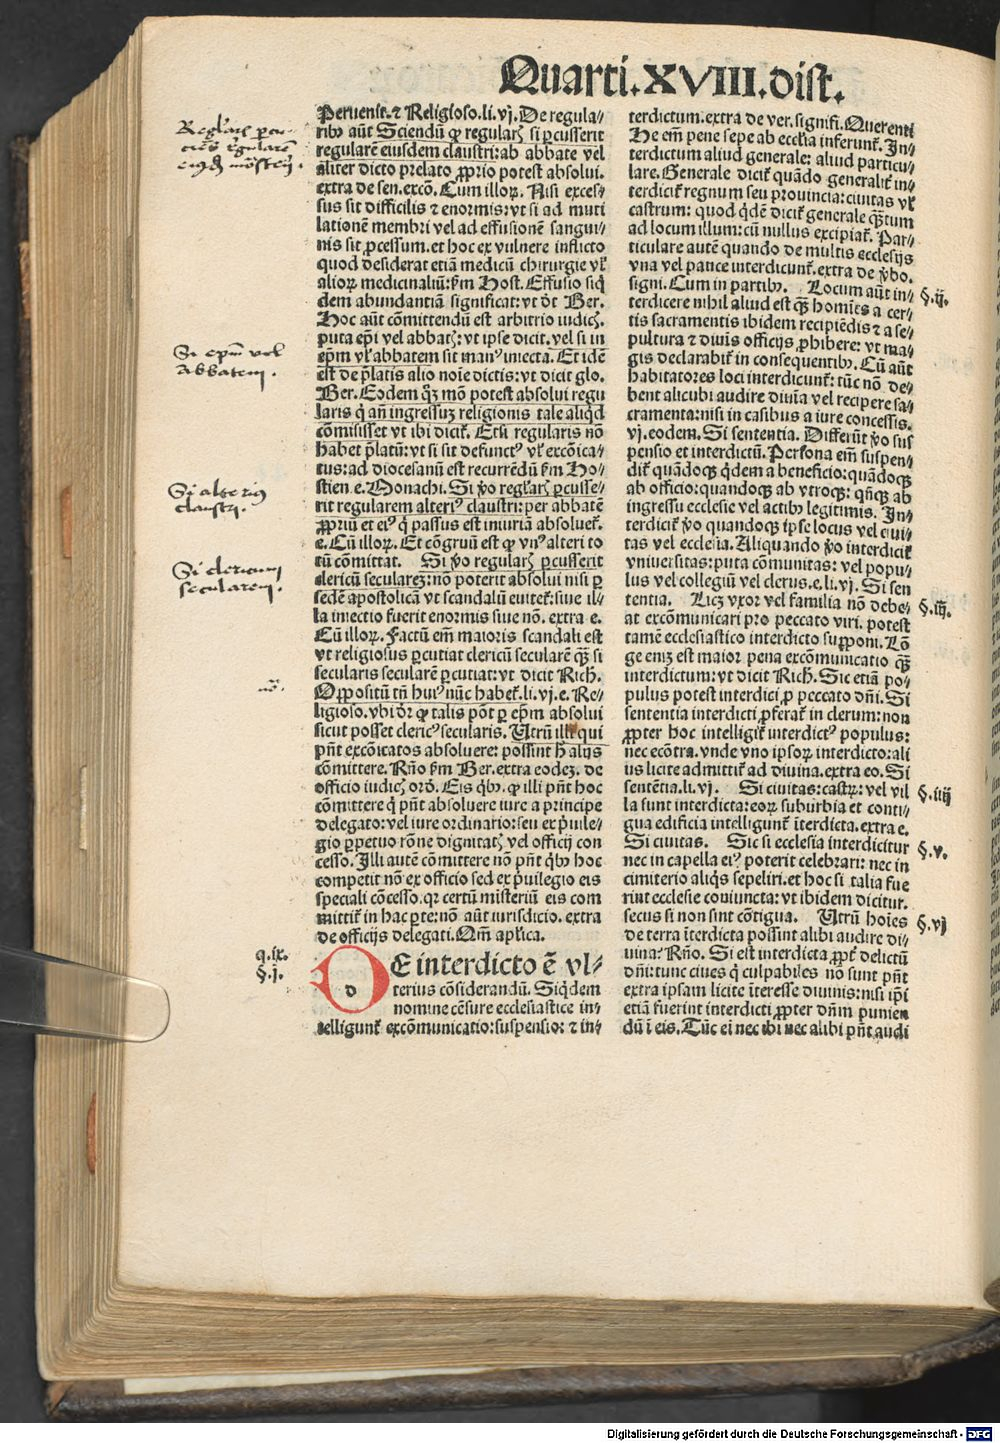 Quarti.XVIII.dist.
Peruenit.⁊ Religioso.li.vj.De regula⸗
ribꝰ aūt Sciendū ꝙ regularꝭ si ꝑcusserit
regularē eiusdem claustri:ab abbate vel
aliter dicto prelato ꝓprio potest absolui.
extra de sen.excō. Cum illoꝝ. Nisi exces⸗
sus sit difficilis ⁊ enormis:vt si ad muti
lationē membri vel ad effusionē sangui⸗
nis sit ꝓcessum.et hoc ex vulnere inflicto
quod desiderat etiā medicū chirurgie vl̕
alioꝝ medicinaliū:ẜm Host. Effusio siq̇
dem abundantiā significat:vt dr̄ Ber.
Hoc aūt cōmittendū est arbitrio iudicꝭ.
puta ep̄i vel abbatꝭ:vt ipse dicit.vel si in
ep̄m vl̕ abbatem sit manꝰ iniecta. Et idē
est de p̄latis alio noīe dictis:vt dicit glo.
Ber. Eodem q̇ꝫ mō potest absolui regu
laris q̇ an̄ ingressuꝫ religionis tale aliq̇d
cōmisisset vt ibi dicit̕. Etsi regularis nō
habet p̄latū:vt si sit defunctꝰ vl̕ excōica⸗
tus:ad diocesanū est recurrēdū ẜm Ho⸗
stien.e.Monachi. Si ꝟo regl̕arꝭ ꝑcusse⸗
rit regularem alteriꝰ claustri:per abbatē
ꝓpriū et eiꝰ q̇ passus est iniuriā absoluet̕.
e. Cū illoꝝ. Et cōgruū est ꝙ vnꝰ alteri to
tū cōmittat. Si ꝟo regularꝭ ꝑcusserit
clericū seculareꝫ:nō poterit absolui nisi ꝑ
sedē apostolicā vt scandalū euitet̕:siue il⸗
la iniectio fuerit enormis siue nō. extra e.
Cū illoꝝ. Factū em̄ maioris scandali est
vt religiosus ꝑcutiat clericū secularē qꝫ̄ si
secularis secularē ꝑcutiat:vt dicit Rich.
Oppositū tn̄ huiꝰ nūc habet̕.li.vj.e. Re⸗
ligioso.vbi dr̄ ꝙ talis pōt ꝑ ep̄m absolui
sicut posset clericꝰ secularis. Utrū illi qui
pn̄t excōicatos absoluere: possint h̄ alijs
cōmittere. Rn̄o ẜm Ber.extra eodeꝫ. de
officio iudicꝭ ord̄. Eis q̇bꝰ. ꝙ illi pn̄t hoc
cōmittere q̇ pn̄t absoluere iure a principe
delegato:vel iure ordinario:seu ex p̄uile⸗
gio ꝑpetuo rōne dignitatꝭ vel officij con
cesso. Illi autē cōmittere nō pn̄t q̇bꝰ hoc
competit nō ex officio sed ex p̄uilegio eis
speciali cōcesso.qꝛ certū misteriū eis com
mittit̕ in hac ꝑte:nō aūt iurisdicio. extra
de officijs delegati. Qm̄ apl̕ica.
DE interdicto ē vl⸗
terius cōsiderandū. Siq̇dem
nomine cēsure ecclesiastice in⸗
telligunt̕ excōmunicatio:suspensio: ⁊ in⸗
terdictum.extra de ver.signifi.Querenti
He em̄ pene sepe ab eccl̕ia inferunt̕. In⸗
terdictum aliud generale: aliud particu⸗
lare. Generale dicit̕ quādo generalit̕ in⸗
terdicit̕ regnum seu prouincia:ciuitas vl̕
castrum: quod q̇dē dicit̕ generale qꝫ̄tum
ad locum illum:cū nullus excipiat̕. Par⸗
ticulare autē quando de multis ecclesijs
vna vel pauce interdicunt̕.extra de ꝟbo.
signi. Cum in partibꝰ. Locum aūt in⸗
terdicere nihil aliud est qꝫ̄ homīes a cer⸗
tis sacramentis ibidem recipiēdis ⁊ a se⸗
pultura ⁊ diuis officijs ꝓhibere: vt ma⸗
gis declarabit̕ in consequentibꝰ. Cū aūt
habitatores loci interdicunt̕: tūc nō de⸗
bent alicubi audire diuīa vel recipere sa⸗
cramenta:nisi in casibus a iure concessis.
vj.eodem. Si sententia. Differūt ꝟo sus
pensio et interdictū. Persona em̄ suspen⸗
dit̕ quādoqꝫ q̇dem a beneficio: quādoqꝫ
ab officio:quandoqꝫ ab vtroqꝫ: qn̄qꝫ ab
ingressu ecclesie vel actibꝰ legitimis. In⸗
terdicit̕ ꝟo quandoqꝫ ipse locus vel ciui⸗
tas vel ecclesia. Aliquando ꝟo interdicit̕
vniuersitas:puta cōmunitas: vel popu⸗
lus vel collegiū vel clerus.e.li.vj. Si sen
tentia. Licꝫ vxor vel familia nō debe⸗
at excōmunicari pro peccato viri. potest
tamē ecclesiastico interdicto supponi. Lō
ge eniꝫ est maior pena excōmunicatio qꝫ̄
interdictum: vt dicit Rich. Sic etiā po⸗
pulus potest interdici ꝓ peccato dn̄i. Si
sententia interdicti ꝓferat̕ in clerum: non
ꝓpter hoc intelligit̕ interdictꝰ populus:
nec ecōtra. vnde vno ipsoꝝ interdicto:ali
us licite admittit̕ ad diuina.extra eo. Si
sentētia.li.vj. Si ciuitas:castꝝ: vel vil
la sunt interdicta:eoꝝ suburbia et conti⸗
gua edificia intelligunt̕ īterdicta.extra e.
Si ciuitas. Sic si ecclesia interdicitur
nec in capella eiꝰ poterit celebrari: nec in
cimiterio aliq̇s sepeliri.et hoc si talia fue
rint ecclesie coniuncta: vt ibidem dicitur.
secus si non sint cōtigua. Utrū hoīes
de terra īterdicta possint alibi audire di⸗
uina? Rn̄o. Si est interdicta ꝓpt̕ delictū
dn̄i:tunc ciues q̇ culpabiles nō sunt pn̄t
extra ipsam licite īteresse diuinis:nisi ip̄i
etiā fuerint interdicti ꝓpter dn̄m punien
dū ī eis. Tūc ei nec ibi nec alibi pn̄t audi
Regl̕arꝭ ꝑcu⸗
ciēs rēgularē
eiusdē mōsterij.
Si ep̄m vel
Abbatem.
Si alterius
claustri.
Si clericum
secularem.
nō.
q.ix.
§.j.
d
§.ij.
§.iij.
§.iiij
§.v.
§.vj
Digitalisierung gefördert durch die Deutsche Forschungsgemeinschaft - DFG